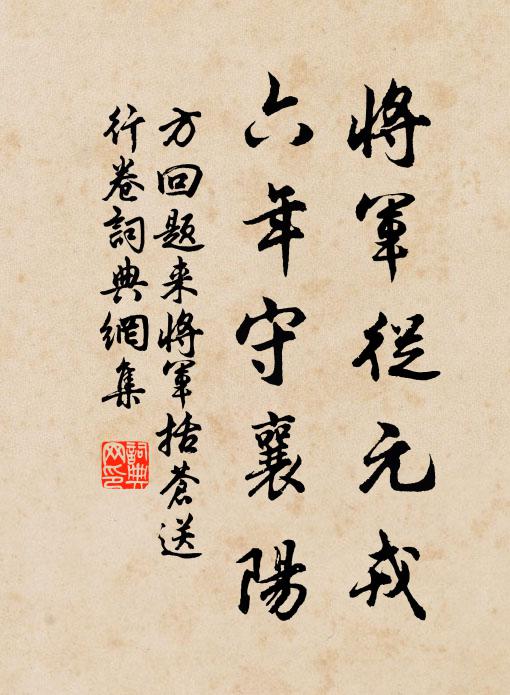 將軍從元戎
六年守襄陽
方回題来將軍括蒼送
行卷詞典網集
詞典
网印